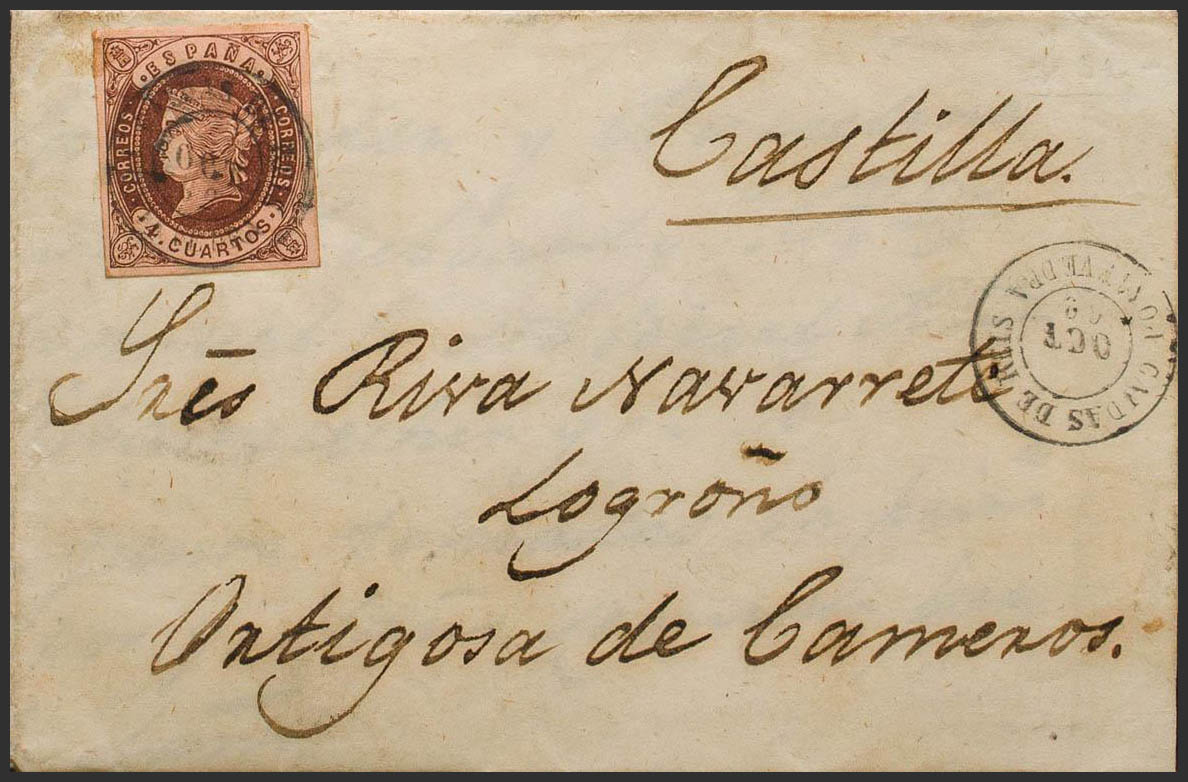 ESPAÑA
CORREOS
CORREOS
4. CUARTOS
Castilla.
CALDAS DE REIS
OCT
Snēs Riva Navarrete
Logroño
Ortigosa de Cameros.